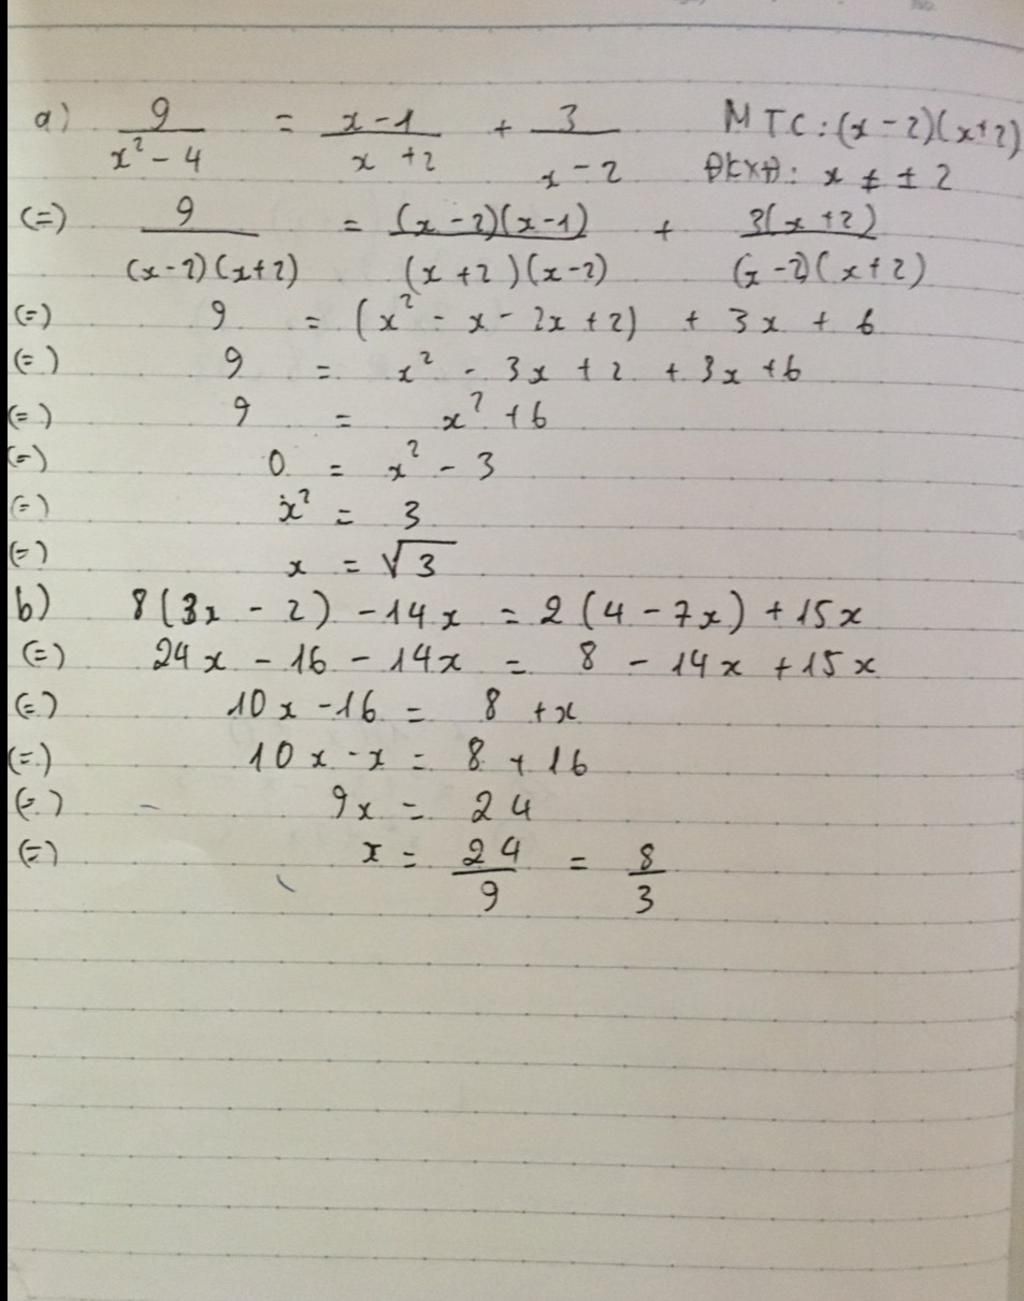 a) 9/(x² - 4) = (x - 1)/(x + 2) + 3/(x - 2) MTC: (x - 2)(x + 2)
ĐKXĐ: x ≠ ± 2
(=) 9/((x - 2)(x + 2)) = ((x - 2)(x - 1))/((x + 2)(x - 2)) + (3(x + 2))/((x - 2)(x + 2))
(=) 9 = (x² - x - 2x + 2) + 3x + 6
(=) 9 = x² - 3x + 2 + 3x + 6
(=) 9 = x² + 6
(=) 0 = x² - 3
(=) x² = 3
(=) x = √3
b) 8(3x - 2) - 14x = 2(4 - 7x) + 15x
(=) 24x - 16 - 14x = 8 - 14x + 15x
(=) 10x - 16 = 8 + x
(=) 10x - x = 8 + 16
(=) 9x = 24
(=) x = 24/9 = 8/3